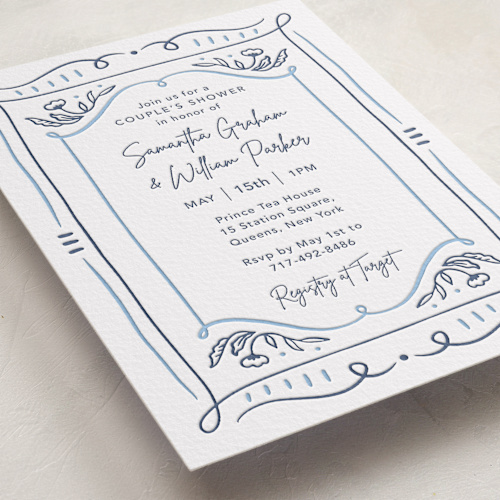 Join us for a
COUPLE'S SHOWER
in honor of
Samantha Graham
& William Parker
MAY | 15th | 1PM
Prince Tea House
15 Station Square,
Queens, New York
Rsvp by May 1st to
717-492-8486
Registry at Target